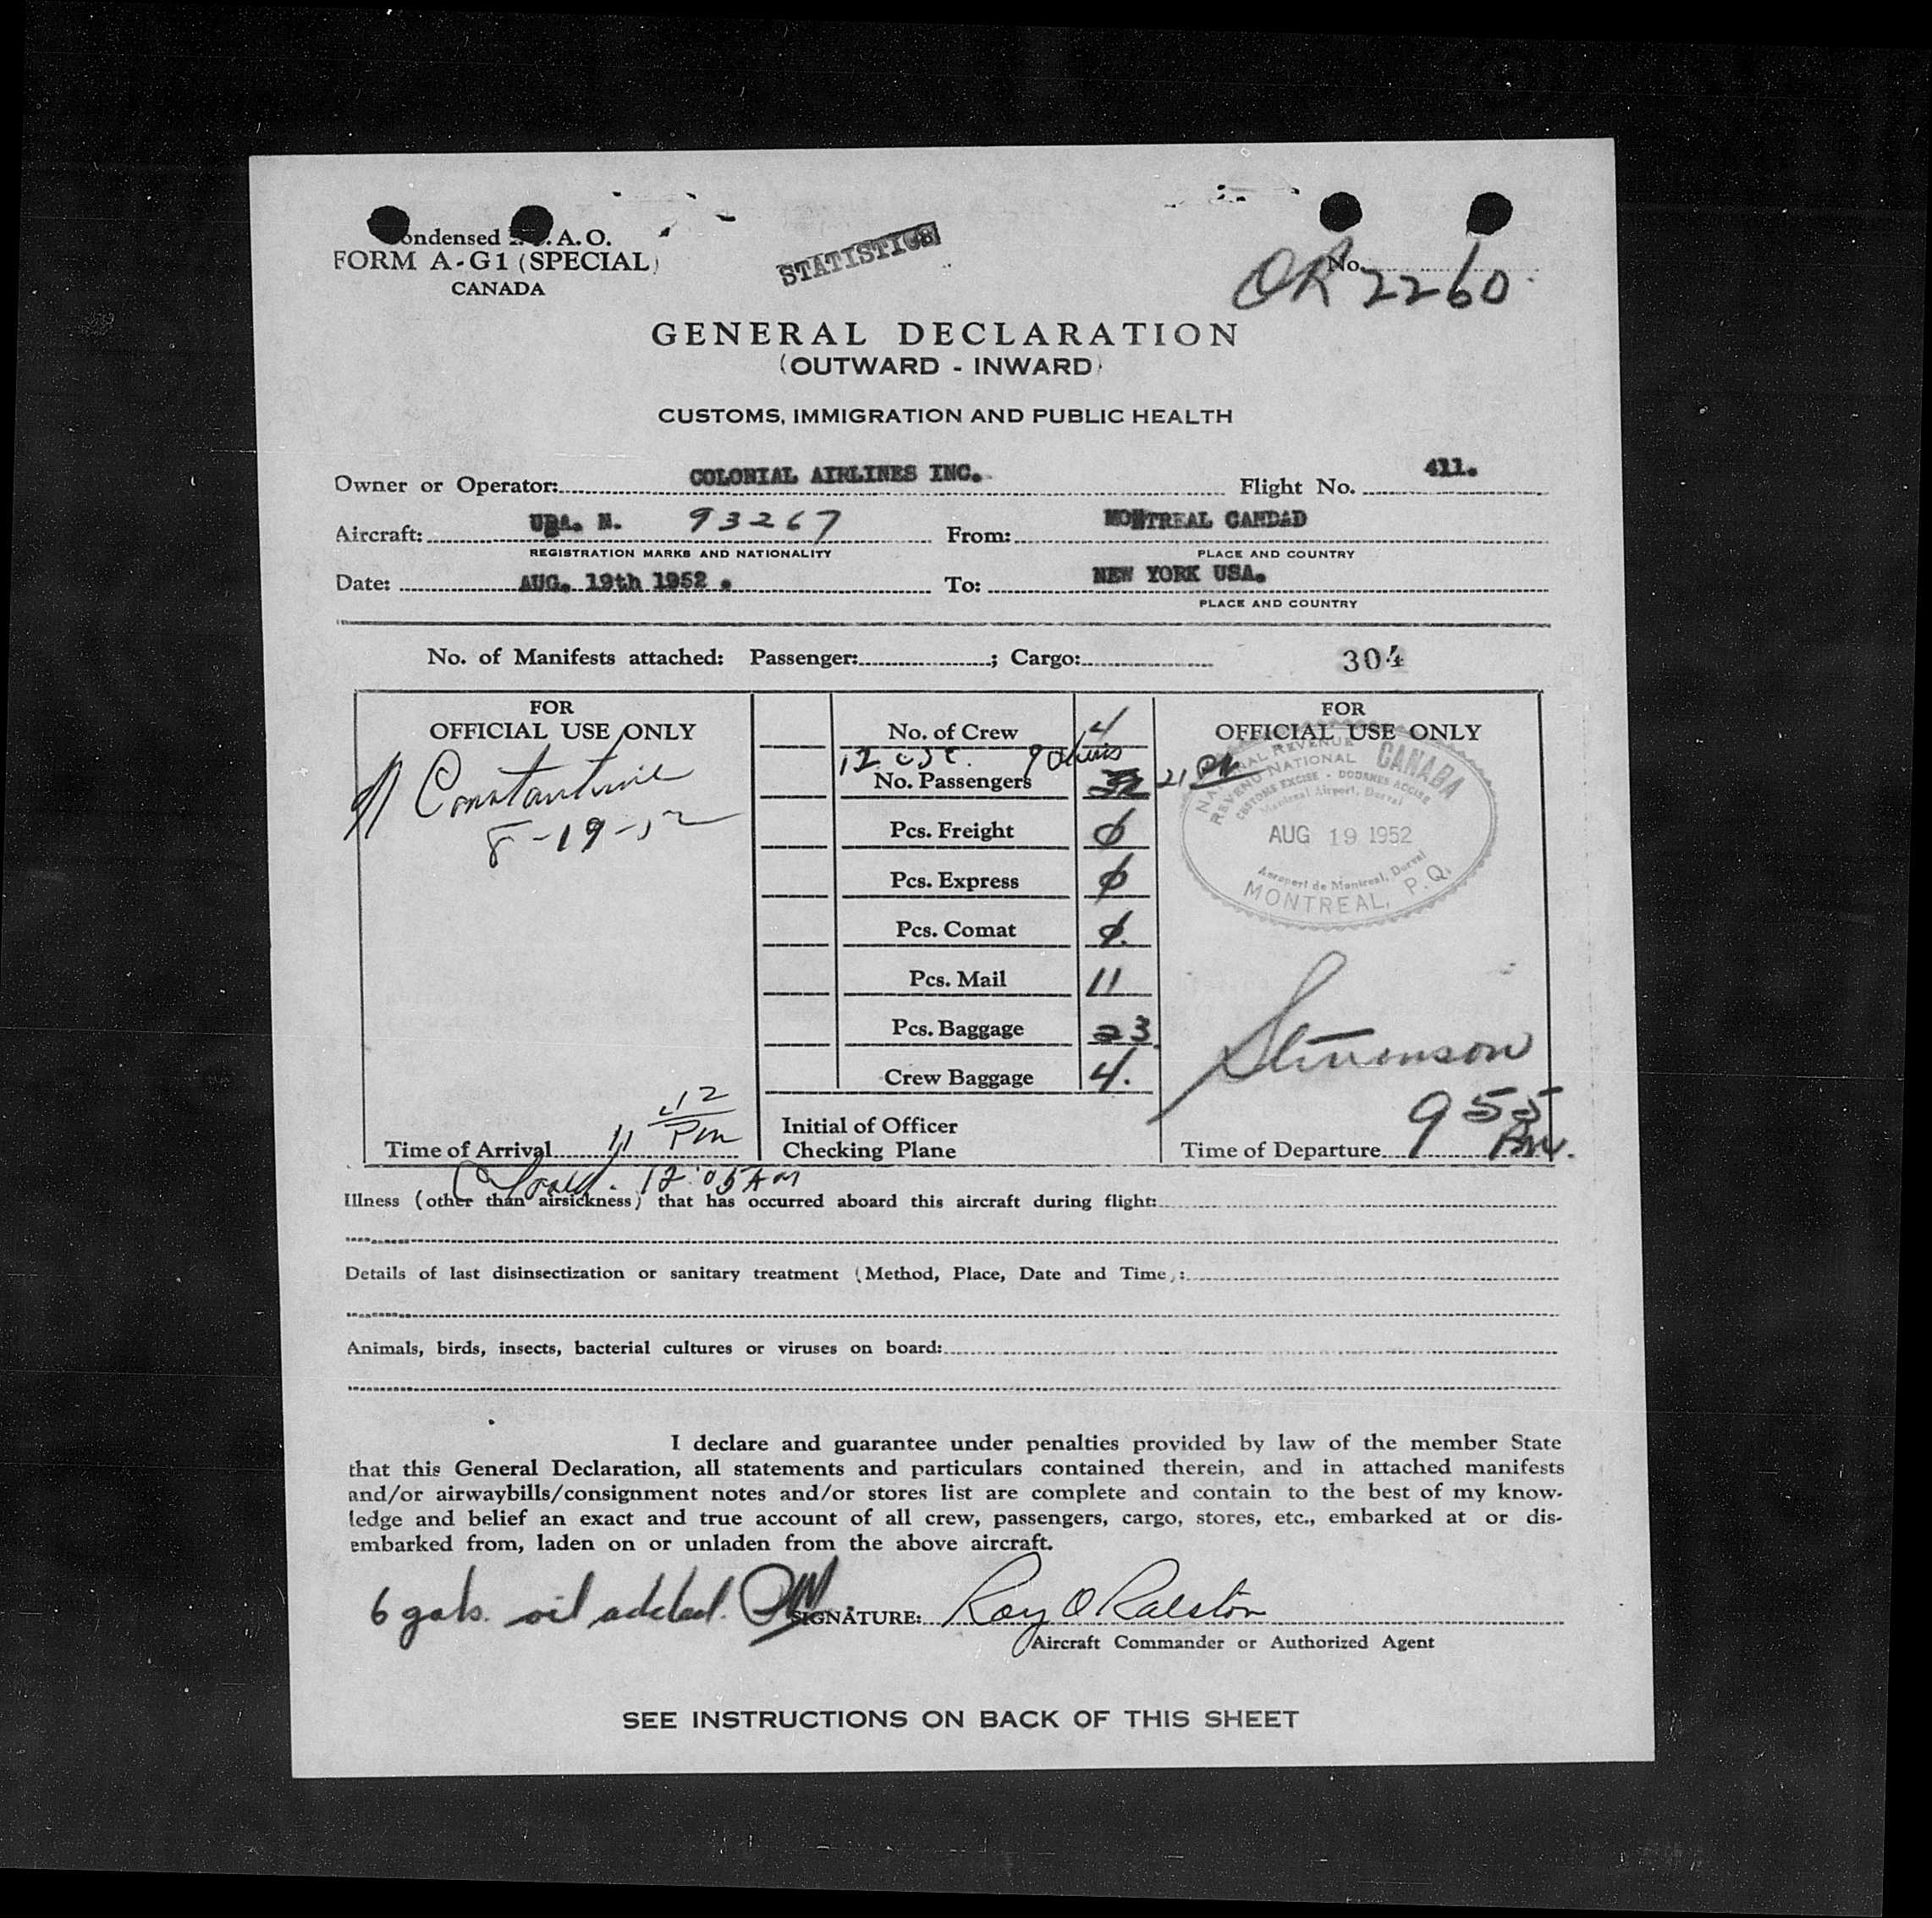 ondensed . . A. O.
FORM A-G1 (SPECIAL)
CANADA
STATISTICS
No.
OR 2260
GENERAL DECLARATION
(OUTWARD - INWARD)
CUSTOMS, IMMIGRATION AND PUBLIC HEALTH
Owner or Operator: COLONIAL AIRLINES INC. Flight No. 411.
Aircraft: USA. N. 93267 From: MONTREAL CANDAD
REGISTRATION MARKS AND NATIONALITY PLACE AND COUNTRY
Date: AUG. 19th 1952. To: NEW YORK USA.
PLACE AND COUNTRY
No. of Manifests attached: Passenger: ; Cargo: 304
FOR
OFFICIAL USE ONLY
Constantine
8-19-52
Time of Arrival 11 12 Pm
No. of Crew 4
12 9 others
No. Passengers 32 21
Pcs. Freight 0
Pcs. Express 0
Pcs. Comat 0
Pcs. Mail 11
Pcs. Baggage 23
Crew Baggage 4.
Initial of Officer
Checking Plane
FOR
OFFICIAL USE ONLY
NATIONAL REVENUE CANADA
REVENU NATIONAL
CUSTOMS EXCISE - DOUANES ACCISE
Montreal Airport, Dorval
AUG 19 1952
Aeroport de Montreal, Dorval
MONTREAL, P.Q.
Stevenson
Time of Departure 9 55 Pm.
12:05 AM
Illness (other than airsickness) that has occurred aboard this aircraft during flight:
Details of last disinsectization or sanitary treatment (Method, Place, Date and Time):
Animals, birds, insects, bacterial cultures or viruses on board:
I declare and guarantee under penalties provided by law of the member State
that this General Declaration, all statements and particulars contained therein, and in attached manifests
and/or airwaybills/consignment notes and/or stores list are complete and contain to the best of my know-
ledge and belief an exact and true account of all crew, passengers, cargo, stores, etc., embarked at or dis-
embarked from, laden on or unladen from the above aircraft.
6 gals. oil added. SIGNATURE: Roy O Ralston
Aircraft Commander or Authorized Agent
SEE INSTRUCTIONS ON BACK OF THIS SHEET